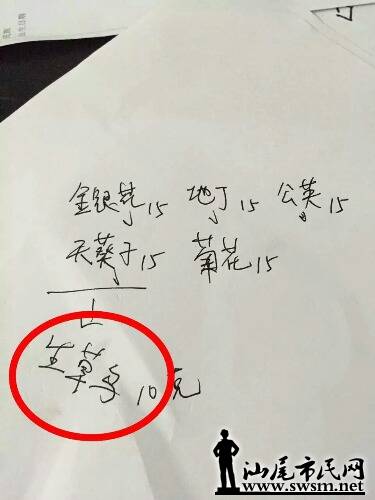 金银花15 地丁15 公英15
天葵子15 菊花15
生草 10克
汕尾市民网
www.swsm.net